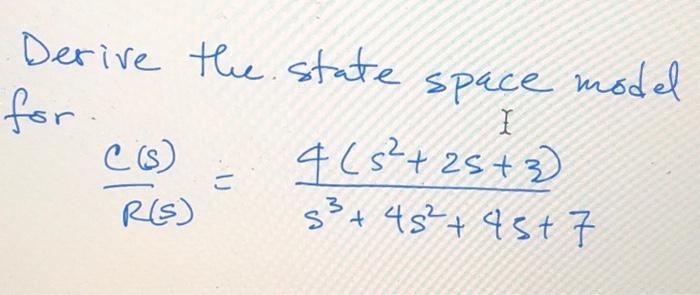 Derive the state space model
for
C(s)/R(s) = 4(s²+2s+3)/s³+4s²+4s+7